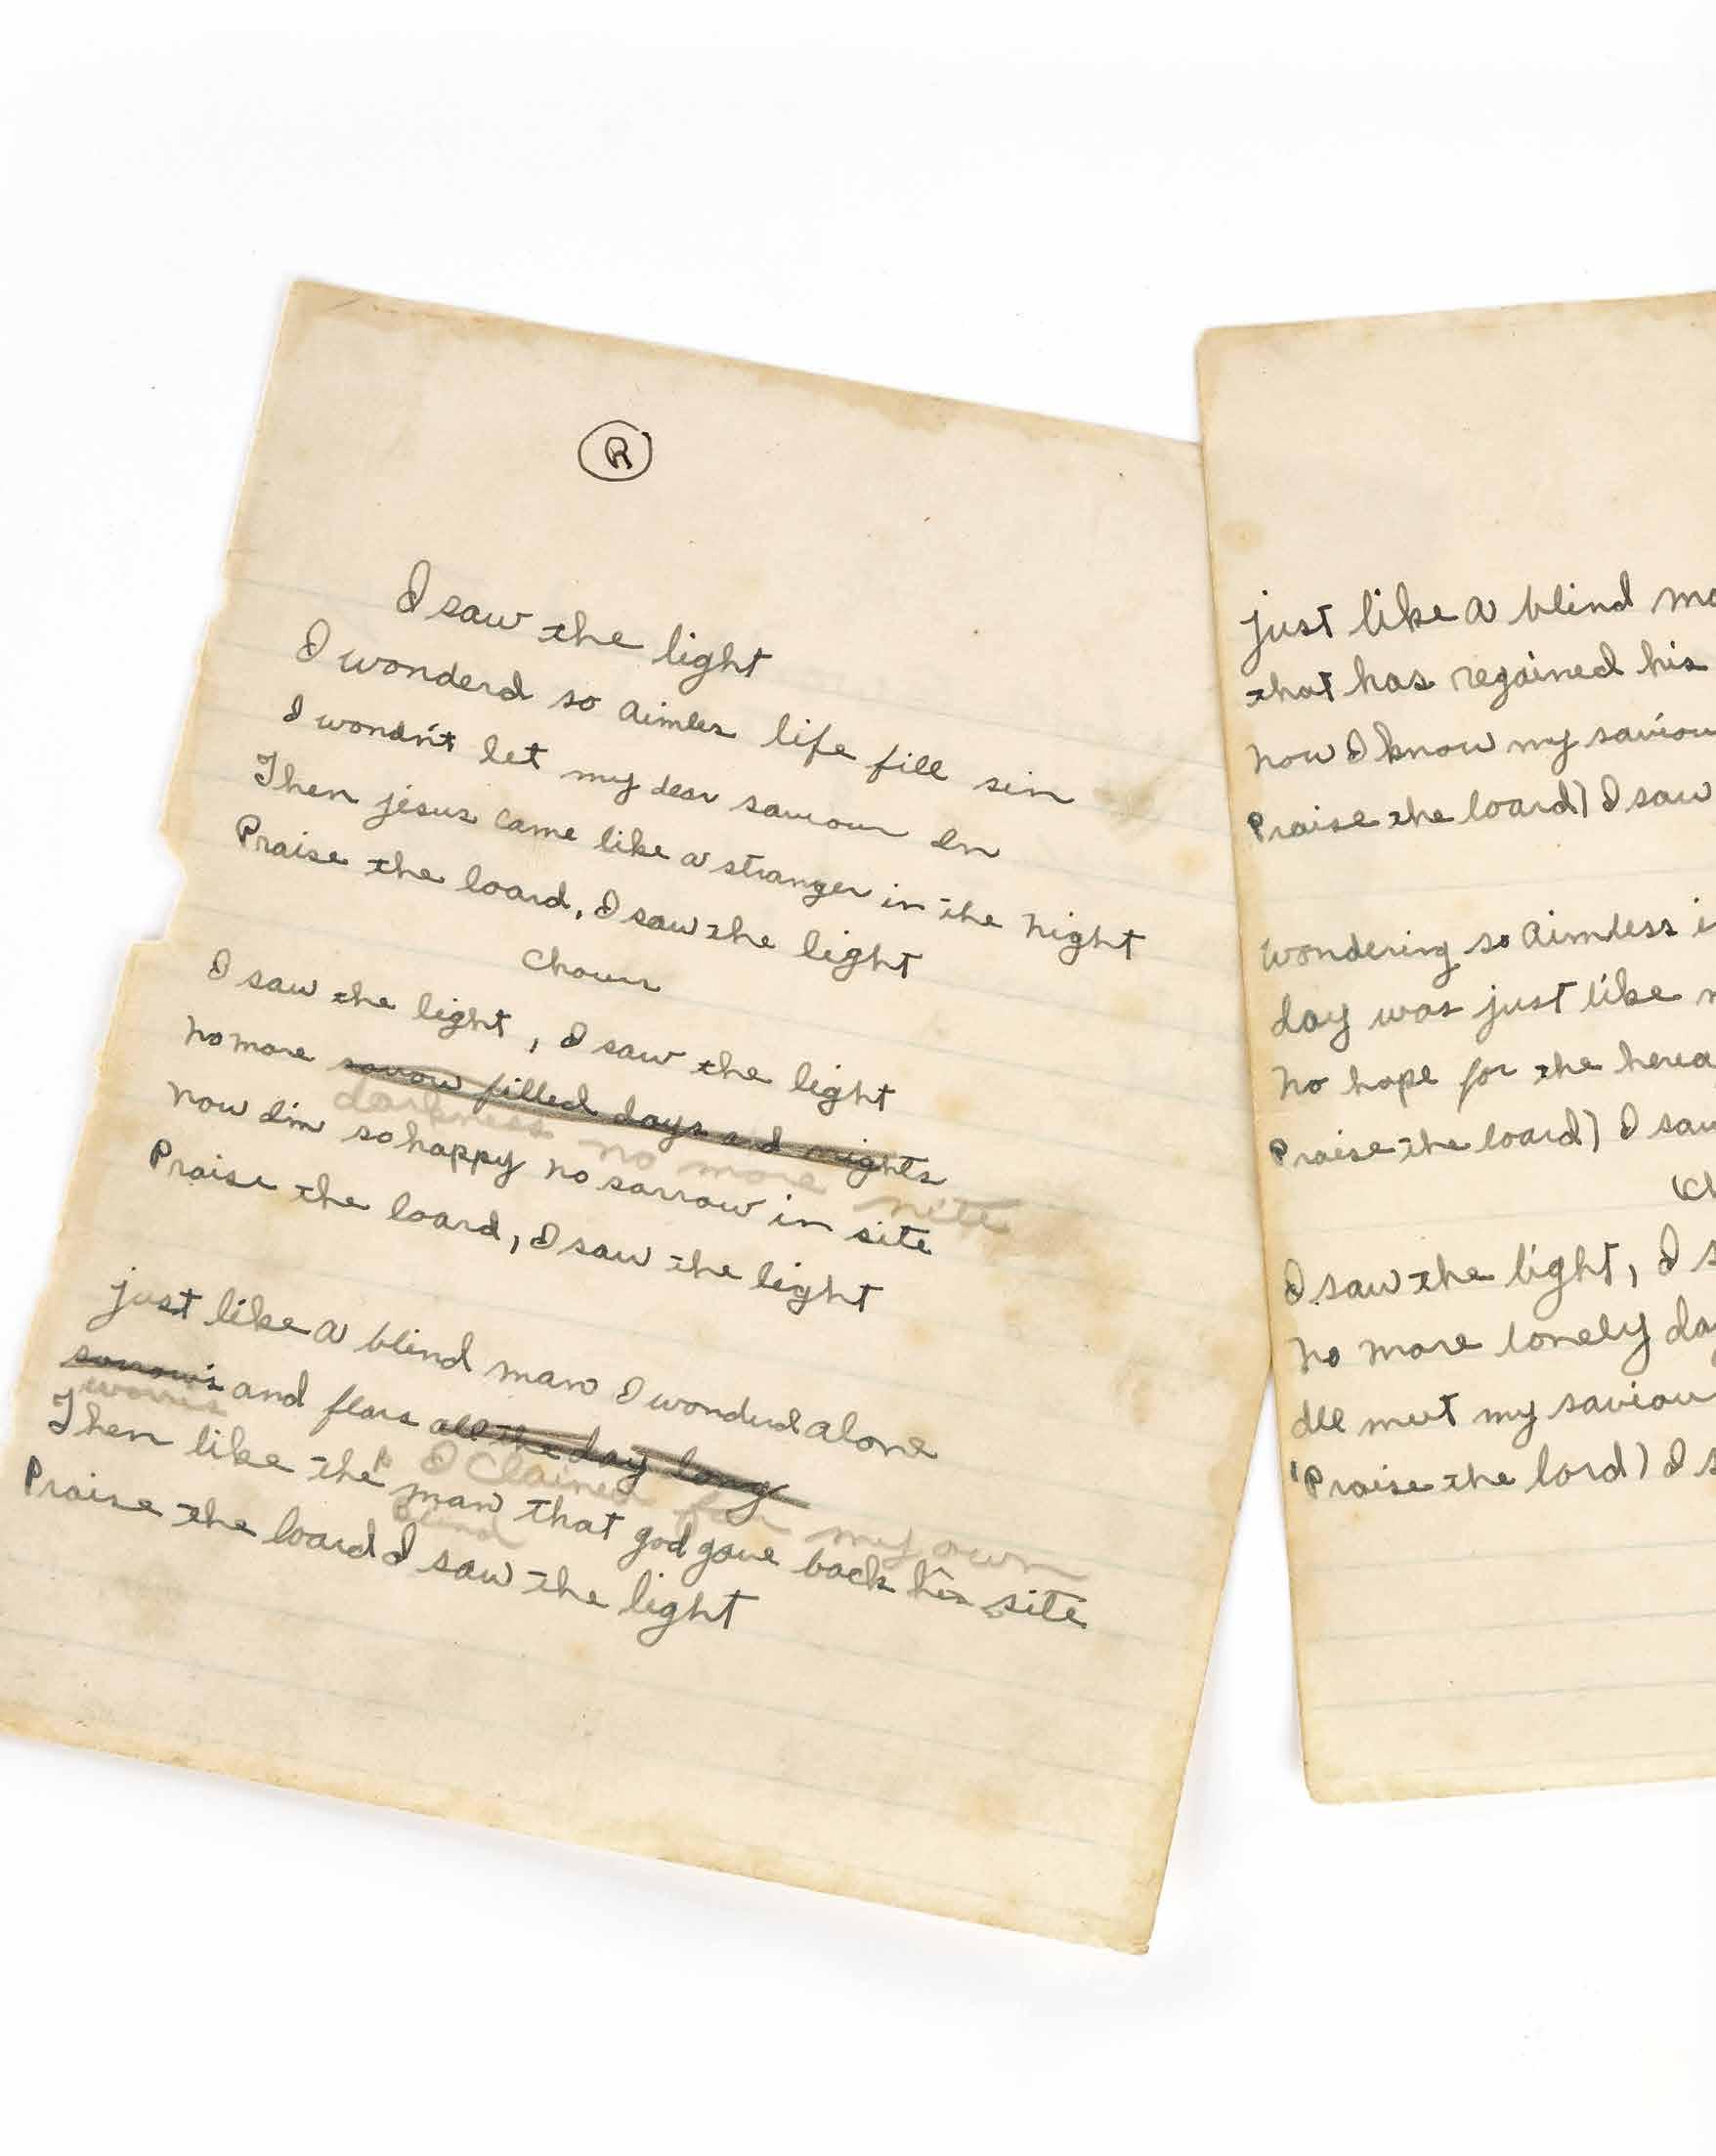 R
I saw the light
I wonderd so aimles life fill sin
I wondn't let my dear saviour In
Then jesus came like a stranger in the night
Praise the loard, I saw the light
Chorus
I saw the light, I saw the light
no more sorrow filled days and nights
darkness no more nite
now I'm so happy no sorrow in site
Praise the loard, I saw the light
just like a blind man I wonderd alone
sorrows and fears all the day long
worries I claimed for my own
Then like the man that god gave back his site
blind
Praise the loard I saw the light
just like a blind ma
that has regained his
now I know my saviou
Praise the loard) I saw
wondering so aimless i
day was just like n
no hope for the herea
Praise the loard) I saw
(Ch
I saw the light, I s
no more lonely day
Ill meet my saviour
Praise the lord) I s